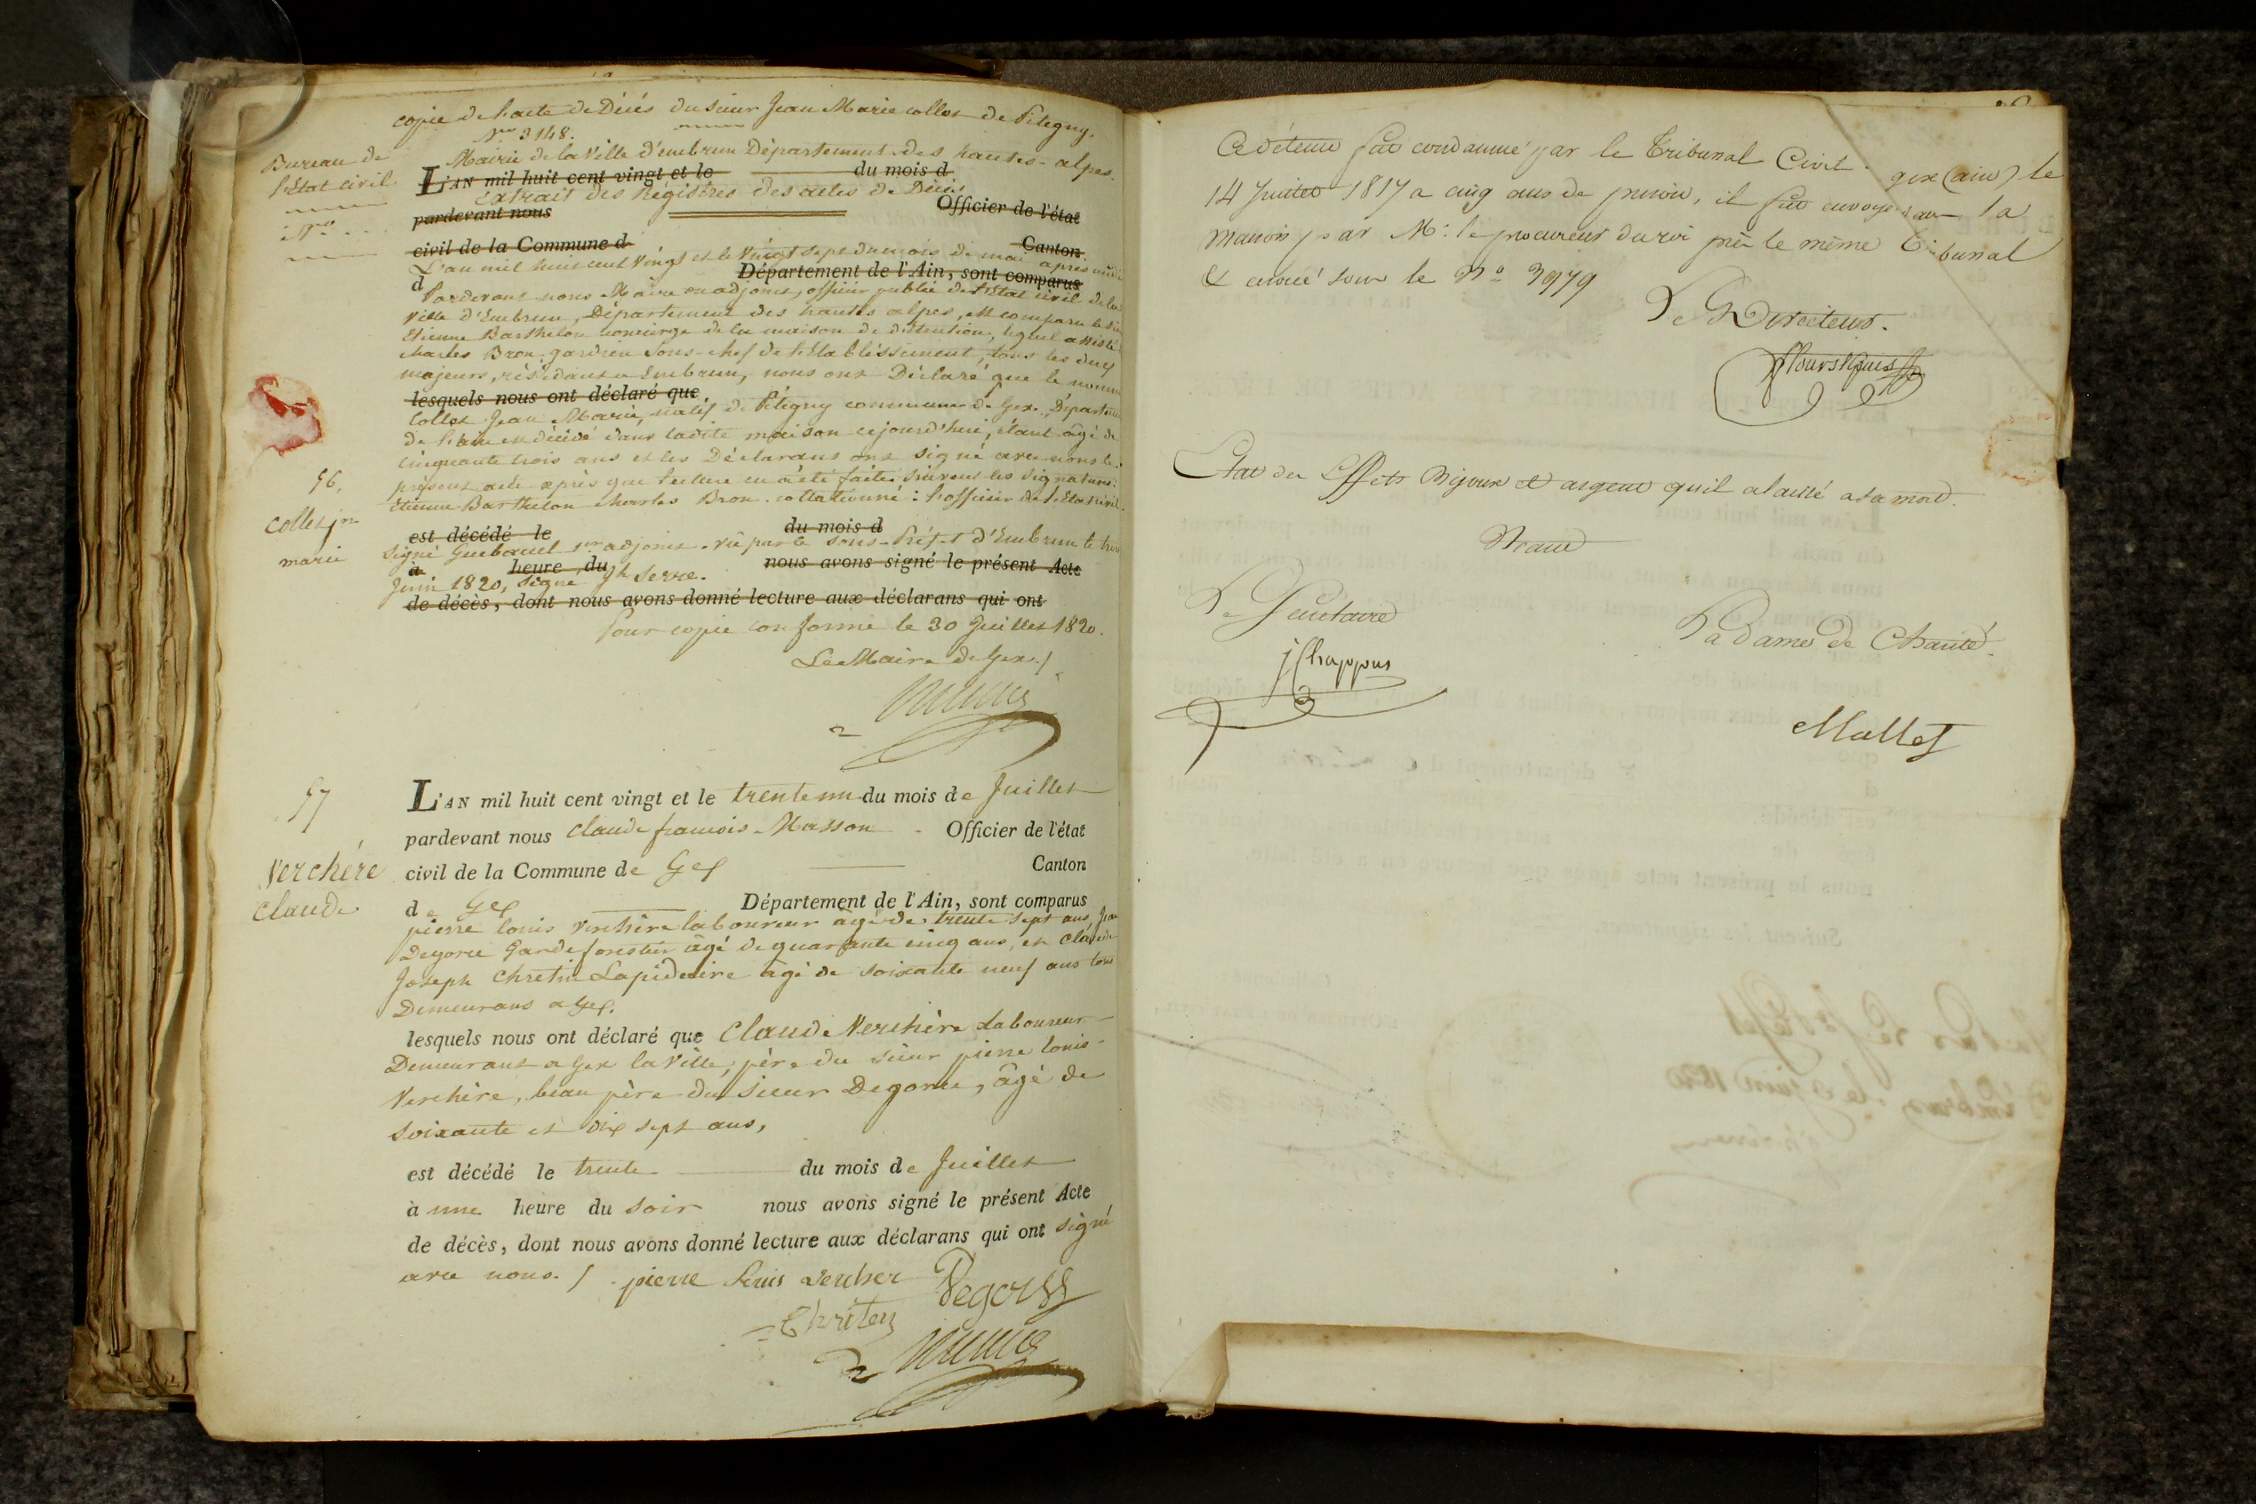 copie de l'acte de Décés du sieur Jean Marie collet de Pitegny,
Nro 3148.
Bureau de
l'Etat civil
Nro. . .
Mairie de la Ville d'embrun Département des hautes-alpes.
L'AN mil huit cent vingt et le du mois d
Extrait des Régistres des actes de Décès
pardevant nous Officier de l'état
civil de la Commune d Canton
L'an mil huit cent vingt et le vingt sept du mois de mai apres midi
d Département de l'Ain, sont comparus
Pardevant nous Maire ou adjoint, officier public de l'Etat civil de la
ville d'Embrun, Département des hautes alpes, est comparu le Sr
Etienne Barthelon concierge de la maison de détention, lequel assisté
charles Bron, gardien sous-chef de l'Etablissement, tous les deux
majeurs, résidant a Embrun, nous ont Déclaré que le nommé
lesquels nous ont déclaré que
Collet Jean Marie, natif de Pitegny commune de Gex, Départem
de l'ain est décédé dans ladite maison cejourd'hui, étant âgé de
cinquante trois ans et les Déclarans ont signé avec nous le
présent acte après que lecture en a été faite, suivent les signatures:
56.
Etienne Barthelon charles Bron. collationné: l'officier de l'Etat civil.
collet jn
marie
est décédé le du mois d
signé adjoint. vu par le sous-Préfet d'Embrun le trois
à heure du nous avons signé le présent Acte
Juin 1820, signé jh Serre.
de décès, dont nous avons donné lecture aux déclarans qui ont
Pour copie conforme le 30 Juillet 1820.
Le Maire de Gex./
57
Verchére
claude
L'AN mil huit cent vingt et le trente un du mois de Juillet
pardevant nous claude francois Masson Officier de l'état
civil de la Commune de Gex Canton
de Gex Département de l'Ain, sont comparus
pierre louis verchère laboureur âgé de trente sept ans, Jean
Degorce Garde forestier âgé de quarante cinq ans, et claude
Joseph chretin Lapidaire âgé de soixante neuf ans tous
Demeurans a Gex.
lesquels nous ont déclaré que Claude Verchère Laboureur
Demeurant a Gex la Ville, père du sieur pierre louis
Verchère, beau père du sieur Degorce, âgé de
soixante et dix sept ans,
est décédé le trente du mois de Juillet
à une heure du soir nous avons signé le présent Acte
de décès, dont nous avons donné lecture aux déclarans qui ont signé
avec nous./. pierre louis vercher Degorss
Chriten
Ce détenu fut condamné par le Tribunal Civil gex (ain) le
14 Juillet 1817 a cinq ans de prison, il fut envoyé dans la
maison par Mr. le procureur du roi près le même Tribunal
& écroué sous le No 3979
Le Directeur.
Etat des Effets Bijoux et argent qu'il a laissé a sa mort.
Néant
Le Secretaire
jChappus
La dame de Charité.
Mallet
L'AN mil huit cent
nous le présent acte après que lecture en a été faite.
Suivent les signatures.